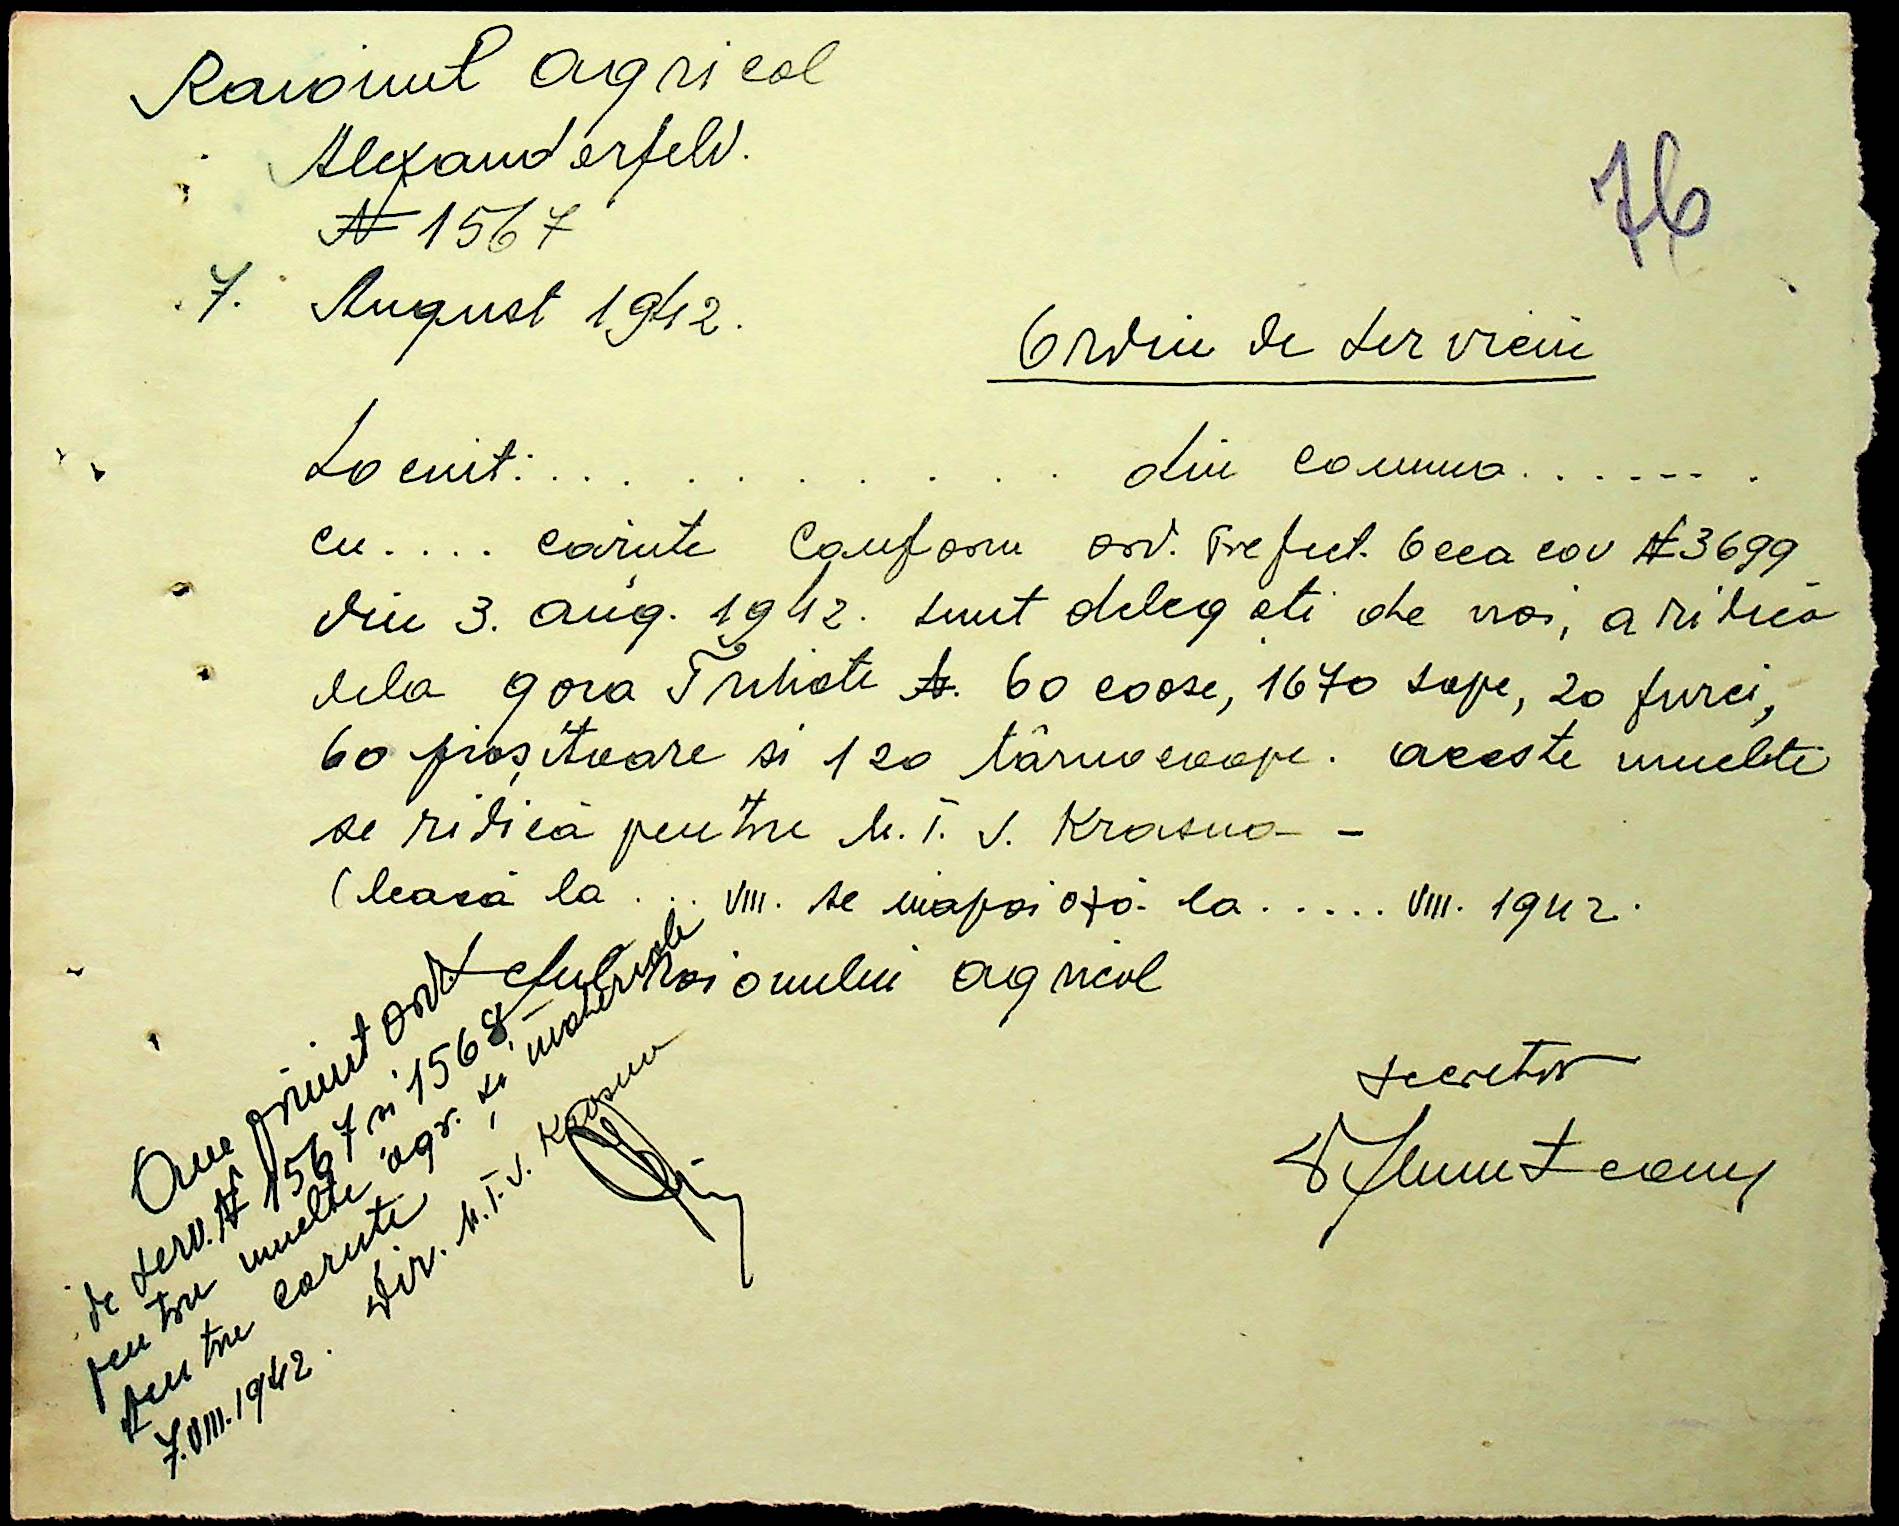 Raionul Agricol
Alexanderfeld.
№ 1567
7. August 1942.
76
Ordin de serviciu
Locuit: . . . . . . . . . . din comuna . . . . . . .
cu . . . . carute Conform ord. Prefect. Oceacov № 3699
din 3. aug. 1942. sunt delegati de noi, a ridica
dela gara Trihate 60 coase, 1670 sape, 20 furci,
60 prașitoare si 120 târnocoape. aceste unelte
se ridică pentru S. T. V. Krasna -
Pleacă la . . . VIII. se inapoiază la . . . . . VIII. 1942.
Seful Raionului agricol
secretar
Am primit ord.
de serv. № 1567 si 1568
pentru unelte agr. și materiale
pentru carute
7.VIII.1942. Dir. S. T. V. Krasna